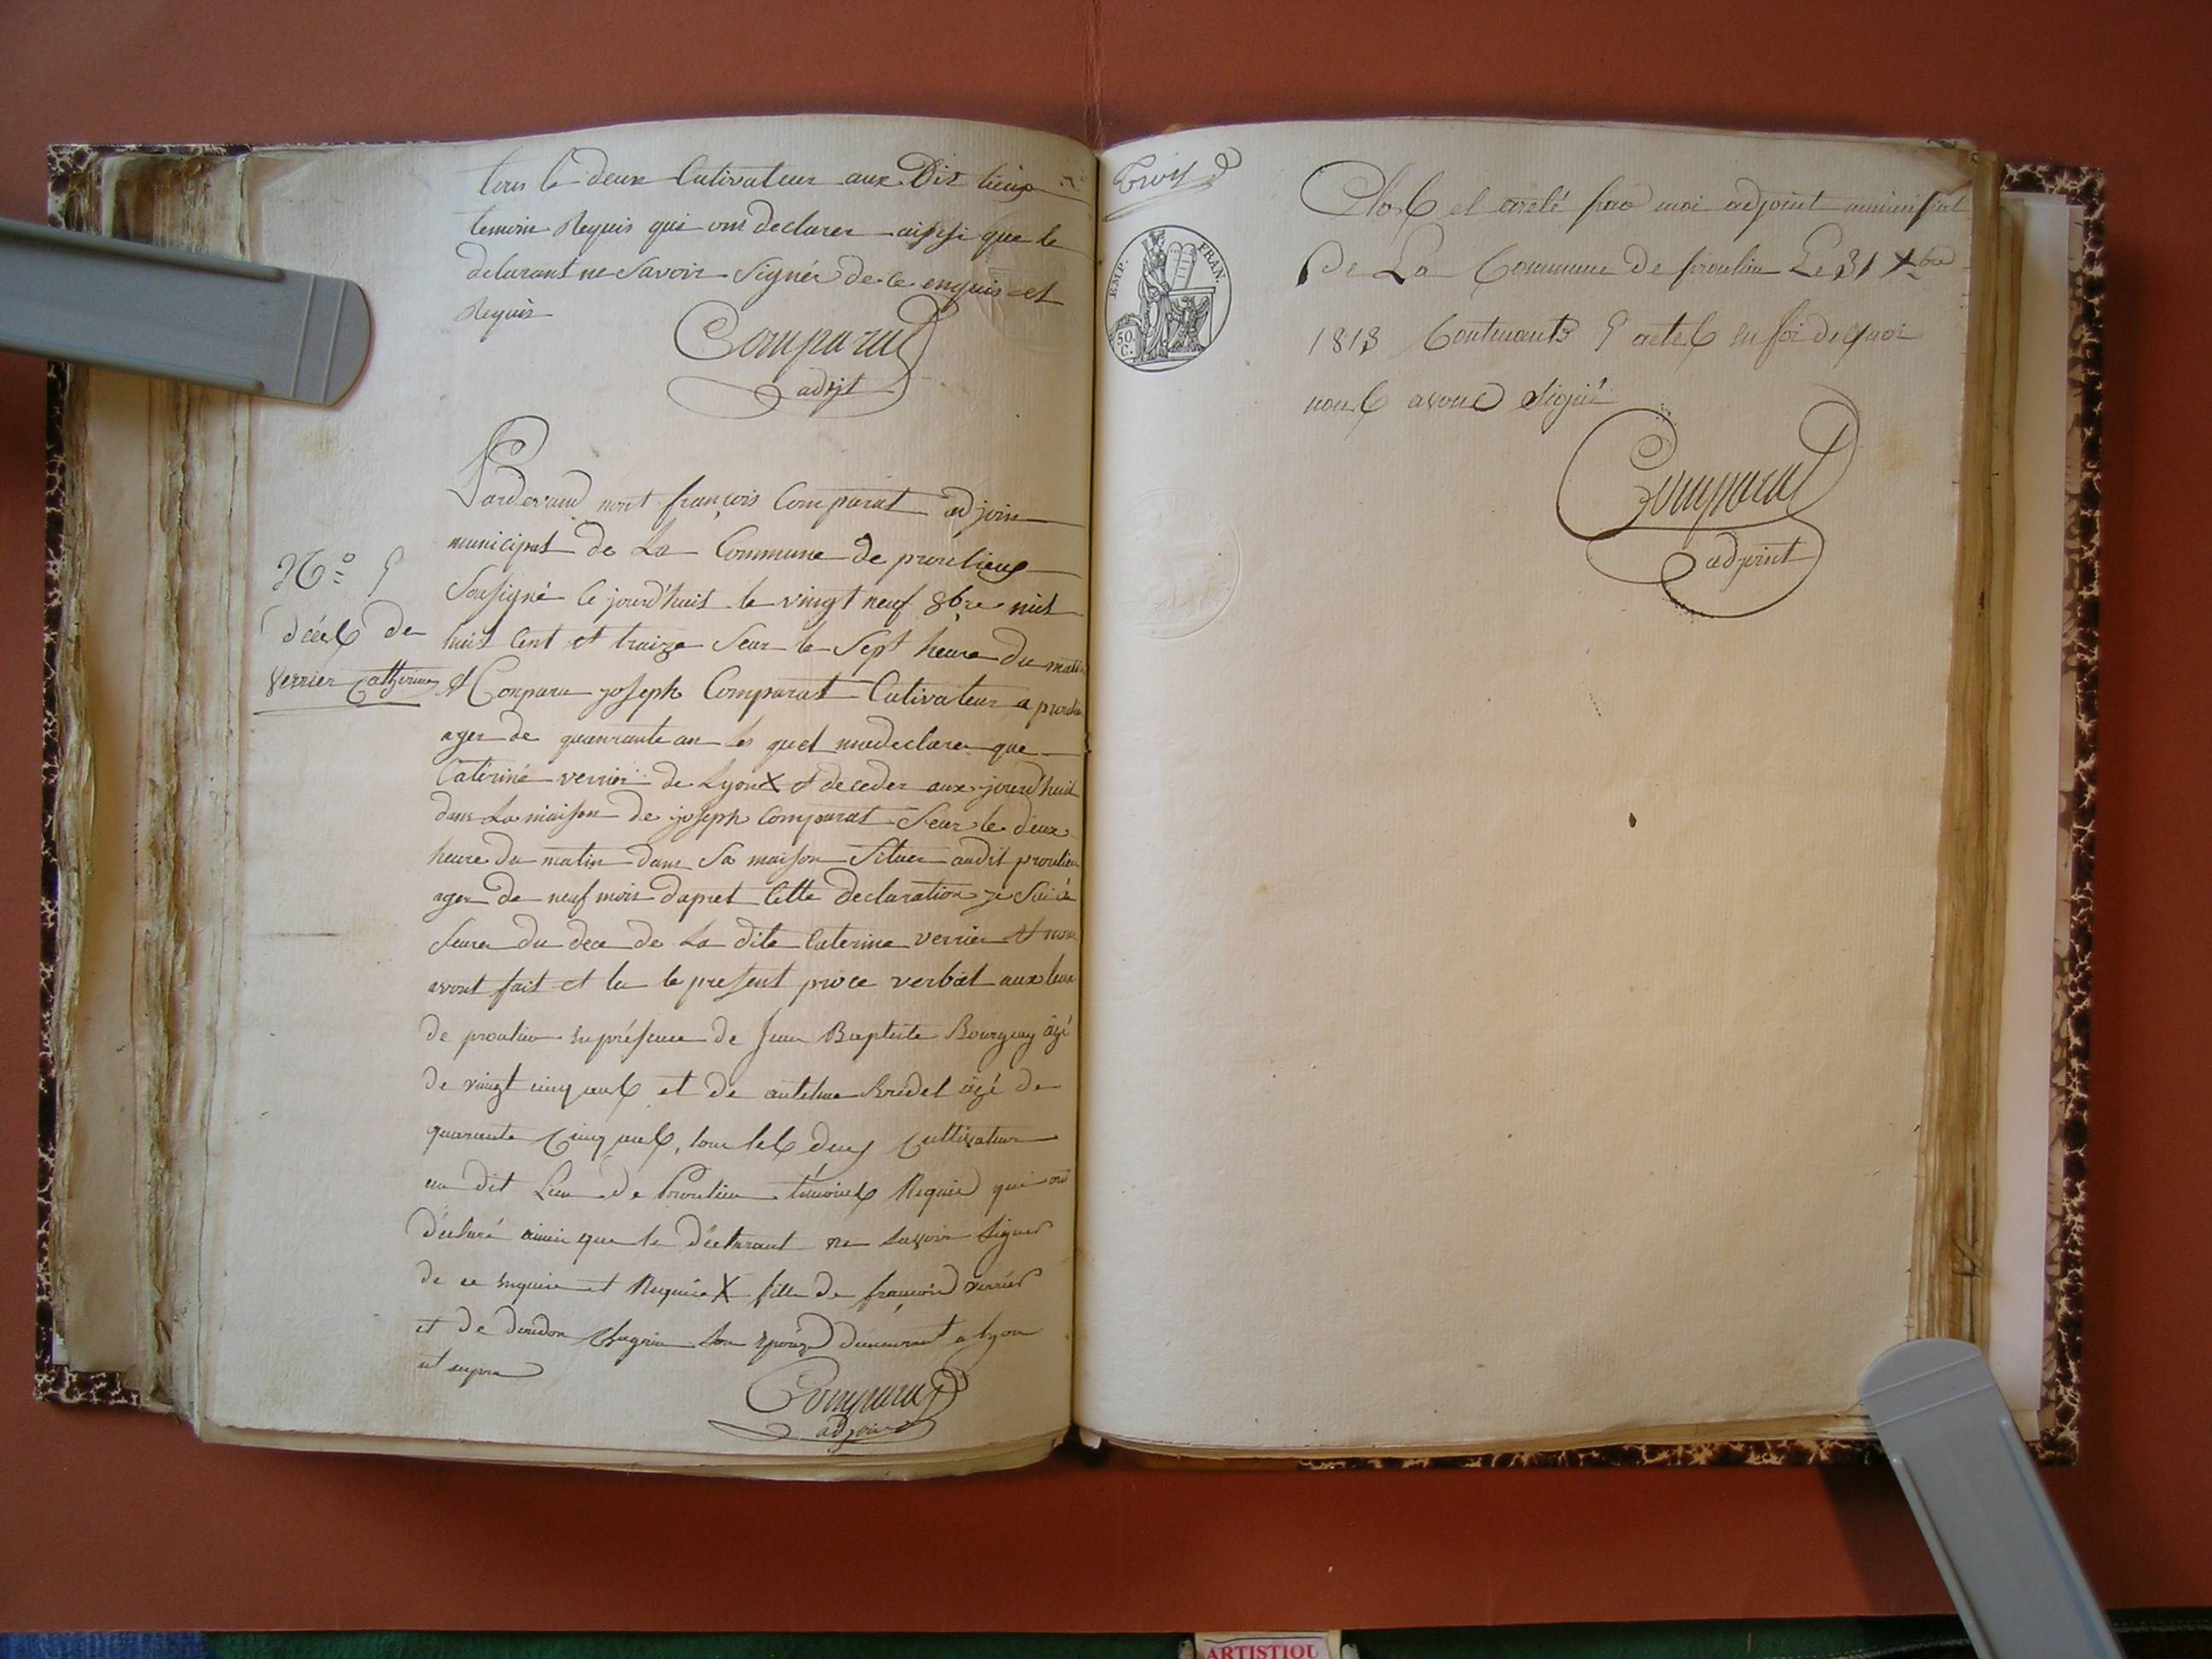 tous le deux Cutivateur aux Dit lieux
temoin Requis qui ons declarer aissi que le
delarant ne Savoir Signér de ce enquis et
Requis
Comparat
adjt
Pardevand nout françois Comparat adjoin
municipat de La Commune de proulieux
Sousigné Ce jourd'huit le vingt neuf 8bre mil
huit Cent et traize Seur le Sept heure Du matin
N.o 9
décés de
Verrier Catherine
et Conparu joseph Comparat Cutivateur a proulieu
ager de quanrante an les quel ma declarer que
Caterine verrier de Lyon X et deceder aux jourd'huit
dans La maison de joseph Comparat Seur le deux
heure du matin dans Sa maison Situer audit proulieu
ager de neuf mois dapret Cette declaration je Sui a
Seurer du dece de La dite Caterine verrier et nous
avont fait et lu le present proce verbat aux lieux
de proulieu en présence de Jean Baptiste Bourgey âgé
de vingt cinq ans et de antelme Bridet âgé de
quarante Cinq ans, tous les deux Cultivateurs
au dit Lieu de Proulieu témoins Requis qui ont
déclaré ainsi que le Déclarant ne Savoir Signer
de ce enquis et Requis X fille de françois verrier
et de Son épouse demeurant a lyon
ut supra
Comparat
adjoind
Trois
EMP. FRAN.
50 C.
Clos et arrêté par moi adjoint municipal
De La Commune de proulieu Le 31 Xbre
1813 Contenants 9 actes en foi de quoi
nous avons Signé
Comparat
adjoint
ARTISTIQU